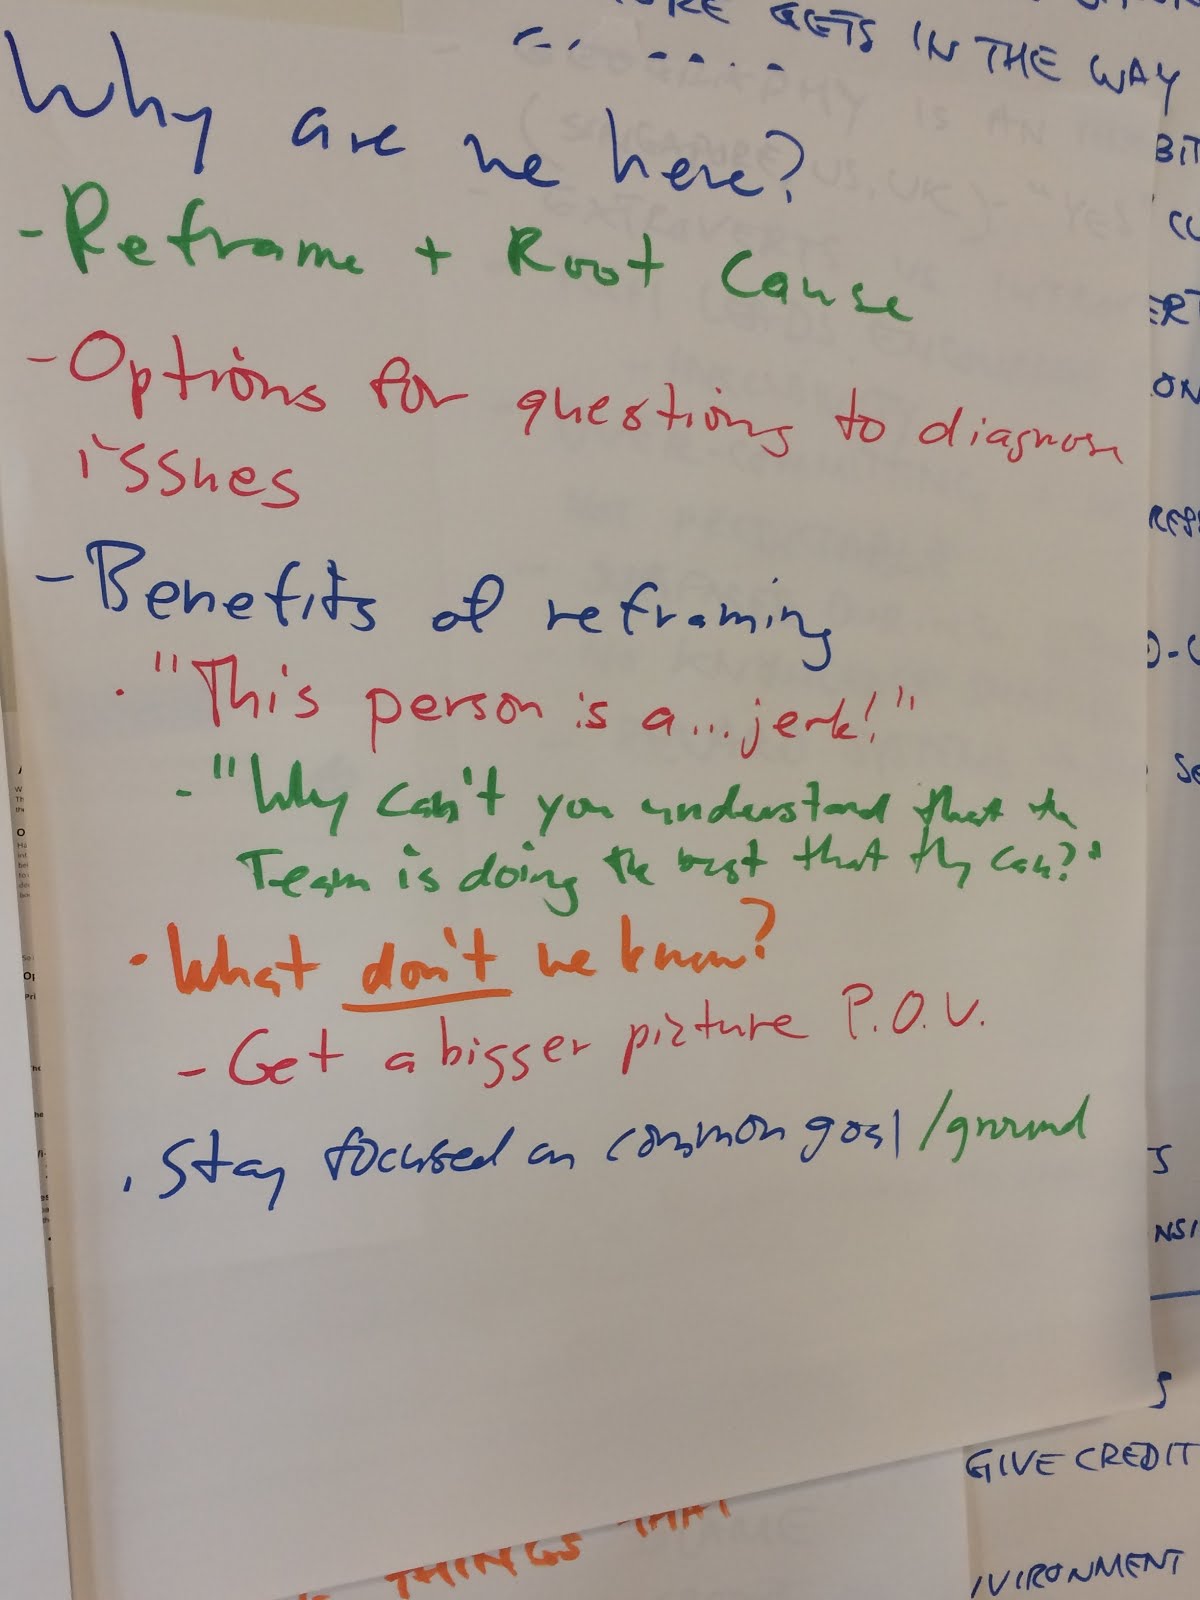 GETS IN THE WAY
Why are we here?
- Reframe + Root Cause
- Options for questions to diagnose
issues
- Benefits of reframing
· "This person is a... jerk!"
- "Why can't you understand that the
Team is doing the best that they can?"
· What don't we know?
- Get a bigger picture P.O.V.
· Stay focused on common goal/ground
GIVE CREDIT
THINGS THAT